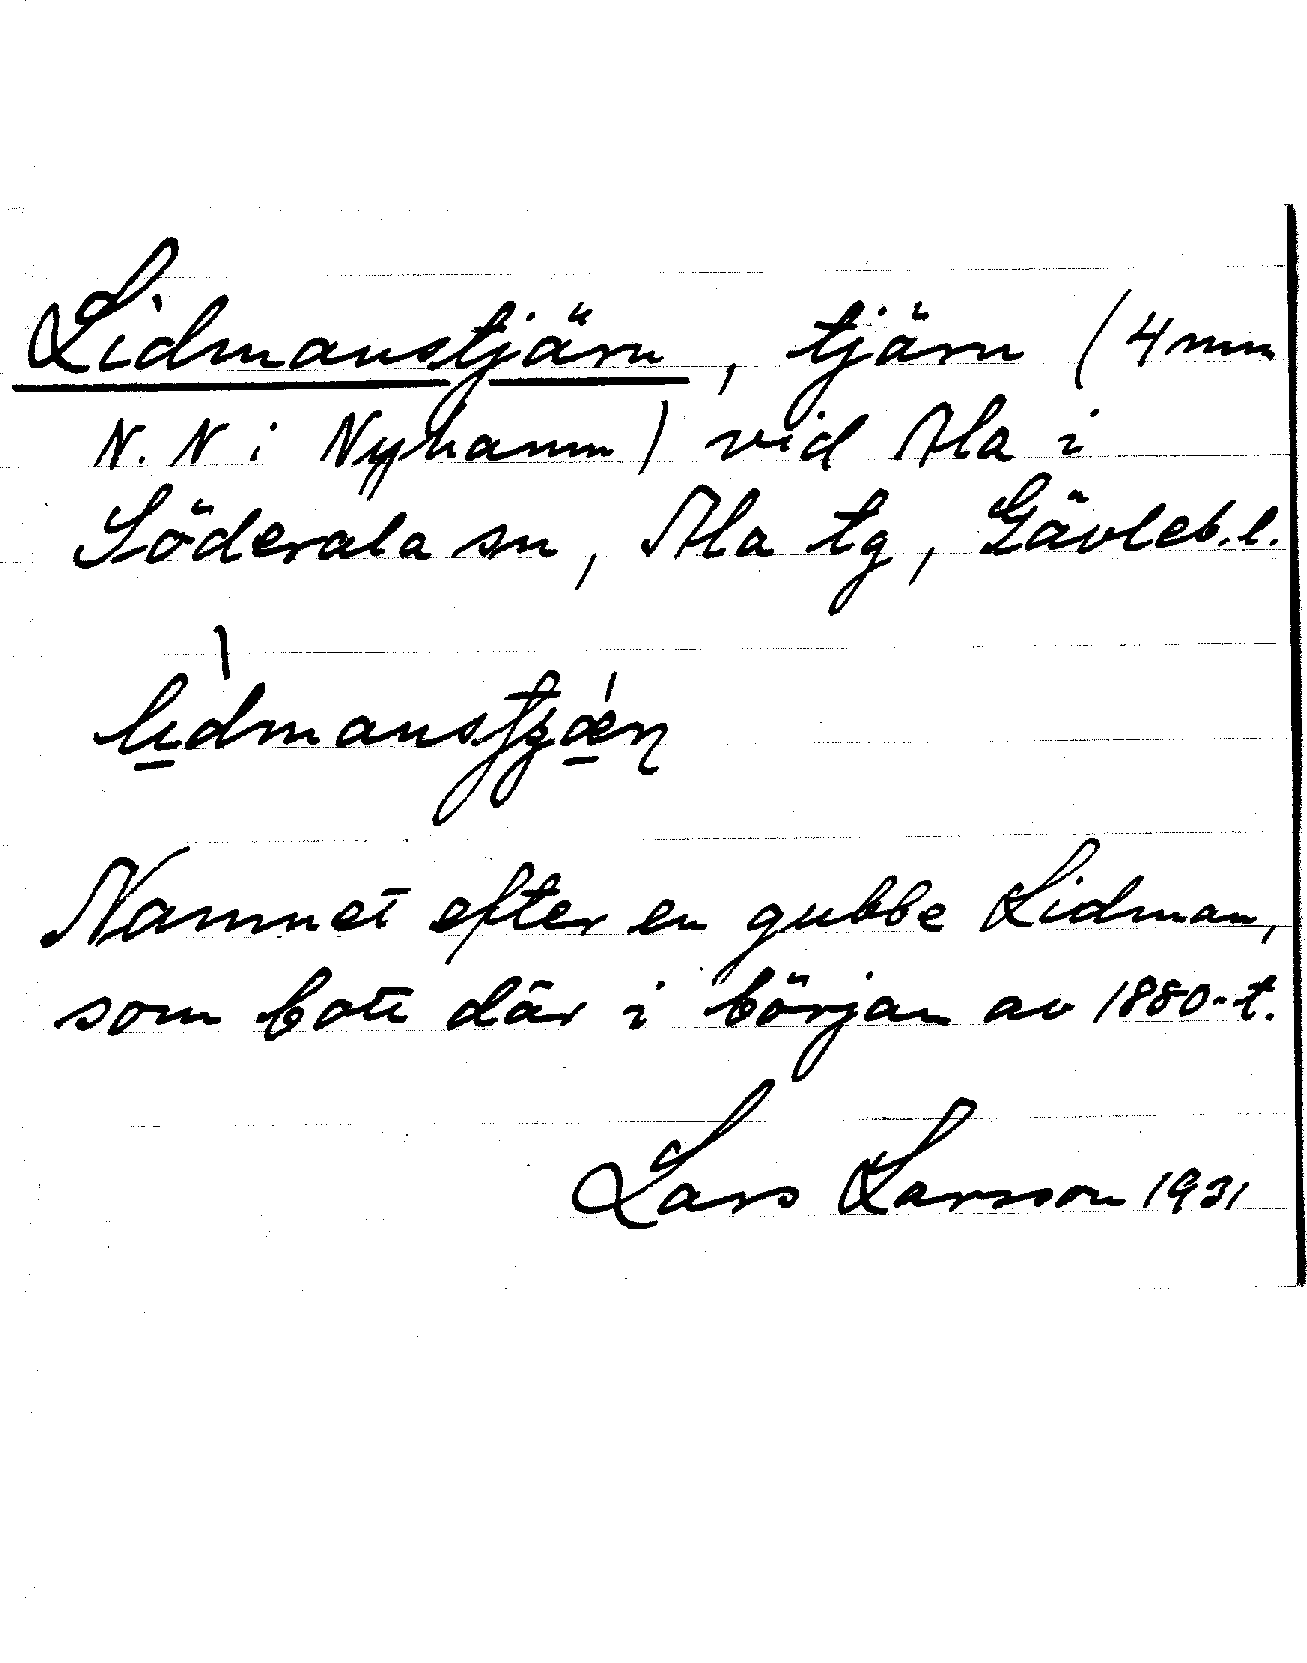 Lidmanstjärn, tjärn (4 mm
N. N i Nyhamn) vid Ala i
Söderala sn, Ala tg, Gävleb.l.
Namnet efter en gubbe Lidman,
som bott där i början av 1880-t.
Lars Larsson 1931